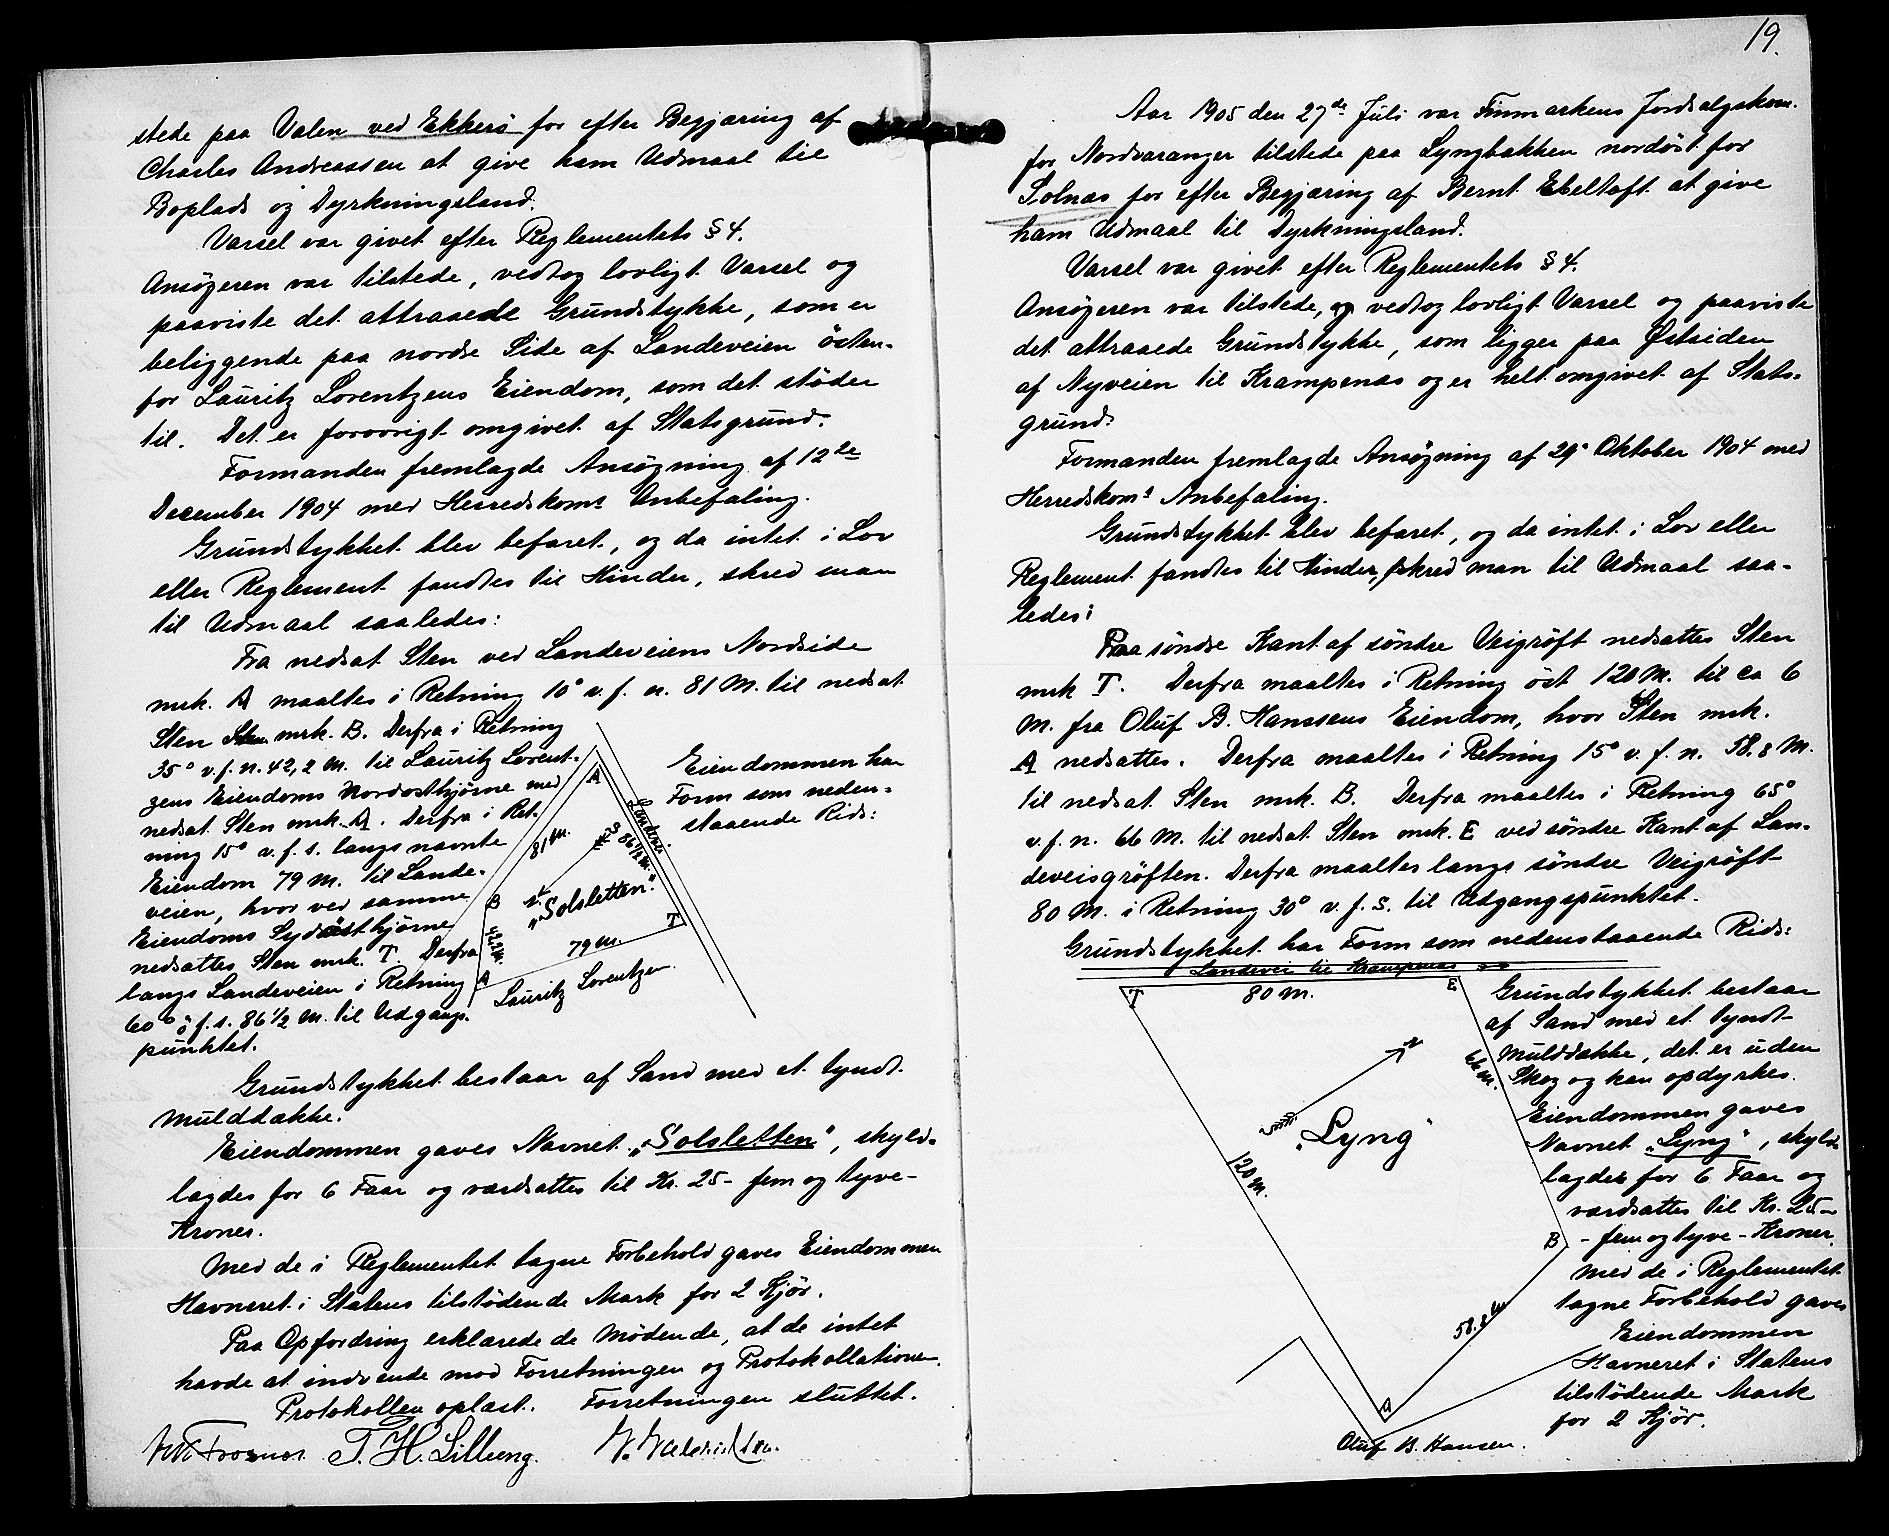 stede paa Valen ved Ekkerö for efter Begjæring af
Charles Andreassen at give ham Udmaal til
Boplads og Dyrkningsland.
Varsel var givet efter Reglementets § 4.
Ansøgeren var tilstede, vedtog lovligt Varsel og
paaviste det attraaede Grundstykke, som er
beliggende paa nordre Side af Landeveien østen-
for Lauritz Lorentzens Eiendom, som det støder
til. Det er forøvrigt omgivet af Statsgrund.
Formanden fremlagde Ansøgning af 12te
December 1904 med Herredskoms Anbefaling.
Grundstykket blev befaret, og da intet i Lov
eller Reglement fandtes til Hinder, skred man
til Udmaal saaledes:
Fra nedsat Sten ved Landeveiens Nordside
mrk. A maaltes i Retning 10° v. f. n. 81 M. til nedsat
Sten mrk. B. Derfra i Retning
35° v. f. n. 42,2 M. til Lauritz Lorent-
zens Eiendoms Nordosthjørne med
nedsat Sten mrk. A. Derfra i Ret-
ning 15° v. f. s. langs nævnte
Eiendom 79 M. til Lande-
veien, hvor ved samme
Eiendoms Sydösthjørne
nedsattes Sten mrk. T. Derfra
langs Landeveien i Retning
60° ö. f. s. 86 1/2 M. til Udgangs-
punktet.
Eiendommen har
Form som neden-
staaende Rids:
A
Landevei
86 1/2 M.
81 M.
N
S
B
"Solsletten"
T
42,2 M.
79 M.
A
Lauritz Lorentzen.
Grundstykket bestaar af Sand med et tyndt
Muldtække.
Eiendommen gaves Navnet "Solsletten", skyld-
lagdes for 6 Faar og værdsattes til Kr. 25 - fem og tyve -
Kroner.
Med de i Reglementet tagne Forbehold gaves Eiendommen
Havneret i Statens tilstødende Mark for 2 Kjør.
Paa Opfordring erklærede de Mødende, at de intet
havde at indvende mod Forretningen og Protokollationen.
Protokollen oplæst. Forretningen sluttet.
T. H. Lilleeng.
19.
Aar 1905 den 27de Juli var Finmarkens Jordsalgskom.
for Nordvaranger tilstede paa Lyngbakken nordöst for
Solnæs for efter Begjæring af Bernt Ebeltoft at give
ham Udmaal til Dyrkningsland.
Varsel var givet efter Reglementets § 4.
Ansøgeren var tilstede, vedtog lovligt Varsel og paaviste
det attraaede Grundstykke, som ligger paa Østsiden
af Nyveien til Krampenæs og er helt omgivet af Stats-
grund.
Formanden fremlagde Ansøgning af 29. Oktober 1904 med
Herredskoms Anbefaling.
Grundstykket blev befaret, og da intet i Lov eller
Reglement fandtes til Hinder, skred man til Udmaal saa-
ledes:
Paa søndre Kant af søndre Veigrøft nedsattes Sten
mrk T. Derfra maaltes i Retning öst 120 M. til ca 6
M. fra Oluf B. Hanssens Eiendom, hvor Sten mrk.
A nedsattes. Derfra maaltes i Retning 15° v. f. n. 58.8 M.
til nedsat Sten mrk. B. Derfra maaltes i Retning 65°
v. f. n. 66 M. til nedsat Sten mrk. E ved søndre Kant af Lan-
deveisgrøften. Derfra maaltes langs søndre Veigrøft
80 M. i Retning 30° v. f. s. til Udgangspunktet.
Grundstykket har Form som nedenstaaende Rids:
Landevei til Krampenæs
T
80 M.
E
66 M.
N
S
"Lyng"
120 M.
B
58.8 M.
A
Oluf B. Hansen.
Grundstykket bestaar
af Sand med et tyndt
Muldtække, det er uden
Skog og kan opdyrkes.
Eiendommen gaves
Navnet "Lyng", skyld-
lagdes for 6 Faar og
værdsattes til Kr. 25 -
- fem og tyve - Kroner.
Med de i Reglementet
tagne Forbehold gaves
Eiendommen
Havneret i Statens
tilstødende Mark
for 2 Kjør.